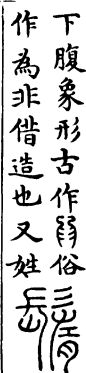 下腹象形古作俗
作為非借造也又姓